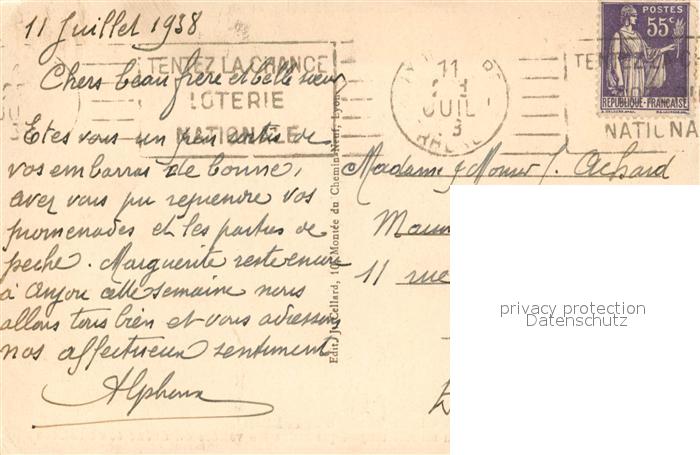 11 Juillet 1938
Chers beau frere et belle sœur
Etes vous un peu sortis de
vos embarras de bonne,
avez vous pu reprendre vos
promenades et les parties de
peche. Marguerite reste encore
à Anjou cette semaine nous
allons tous bien et vous adressons
nos affectueux sentiments
Alphonse
TENTEZ LA CHANCE
LOTERIE
NATIONALE
11
JUIL
3
RHONE
POSTES
55c
REPUBLIQUE-FRANÇAISE
NATIONA
Edit. J. Cellard, 10, Montée du Chemin-Neuf, Lyon
Madame & Monsr J. Achard
11 rue
privacy protection
Datenschutz